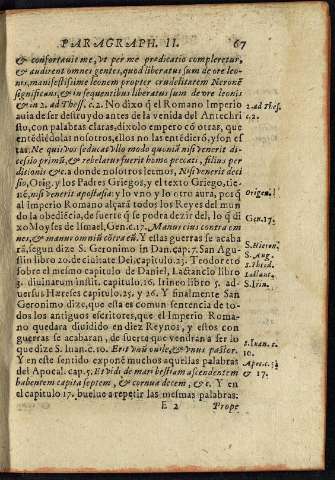 PARAGRAPH. II. 67
& confortauit me, vt per me predicatio compleretur,
& audirent omnes gentes, quod liberatus sum de ore leo-
nis, manifestissime leonem propter crudelitatem Neronē
significans, & in sequentibus liberatus sum de ore leonis
& in 2. ad Thess. c. 2. No dixo q̄ el Romano Imperio
auia de ser destruydo antes de la venida del Antechri
sto, con palabras claras, dixolo empero cō otras, que
entēdiēdolas nosotros, ellos no las entēdierō, y son es
tas. Ne quis vos seducat vllo modo quoniā nisi venerit di-
cesio primū, & rebelatus fuerit homo peccati, filius per
ditionis &c. a donde nosotros leemos, Nisi venerit deci
sio, Orig. y los Padres Griegos, y el texto Griego, tie-
nē, nisi venerit apostasia: y lo vno y lo otro aura, porq̄
al Imperio Romano alçará todos los Reyes del mun
do la obediēcia, de suerte q̄ se podra dezir del, lo q̄ di
xo Moyses de Ismael, Gen. c. 17. Manus eius contra om
nes, & manus omniū cōtra eū. Y ellas guerras se acaba
rá, segun dize S. Geronimo in Dan. cap. 7. San Agu-
stin libro 20. de ciuitate Dei. capitulo 23. Teodoreto
sobre el mesmo capitulo de Daniel, Lactancio libro
3. diuinarum instit. capitulo 16. Irineo libro 5. ad-
uersus Hæreses capitulo 25. y 26. Y finalmente San
Geronimo dize, que esta es comun sentencia de to-
dos los antiguos escritores, que el Imperio Roma-
no quedara diuidido en diez Reynos, y estos con
guerras se acabaran, de suerte que vendran a ser lo
que dize S. Iuan. c. 10. Erit vnū ouile, & vnus pastor.
Y en este sentido exponē muchos aquellas palabras
del Apocal. cap. 5. Et vidi de mari bestiam ascendentem
habentem capita septem, & cornua decem, & c. Y en
el capitulo 17. buelue a repetir las mesmas palabras:
E 2 Prope
2. ad Thess.
c. 2.
Origen.
Gen. 17.
S. Hieron.
S. Aug.
S. Theod.
Lactant.
S. Irin.
S. Iuan. c.
10.
Apoc. c.
& 17.